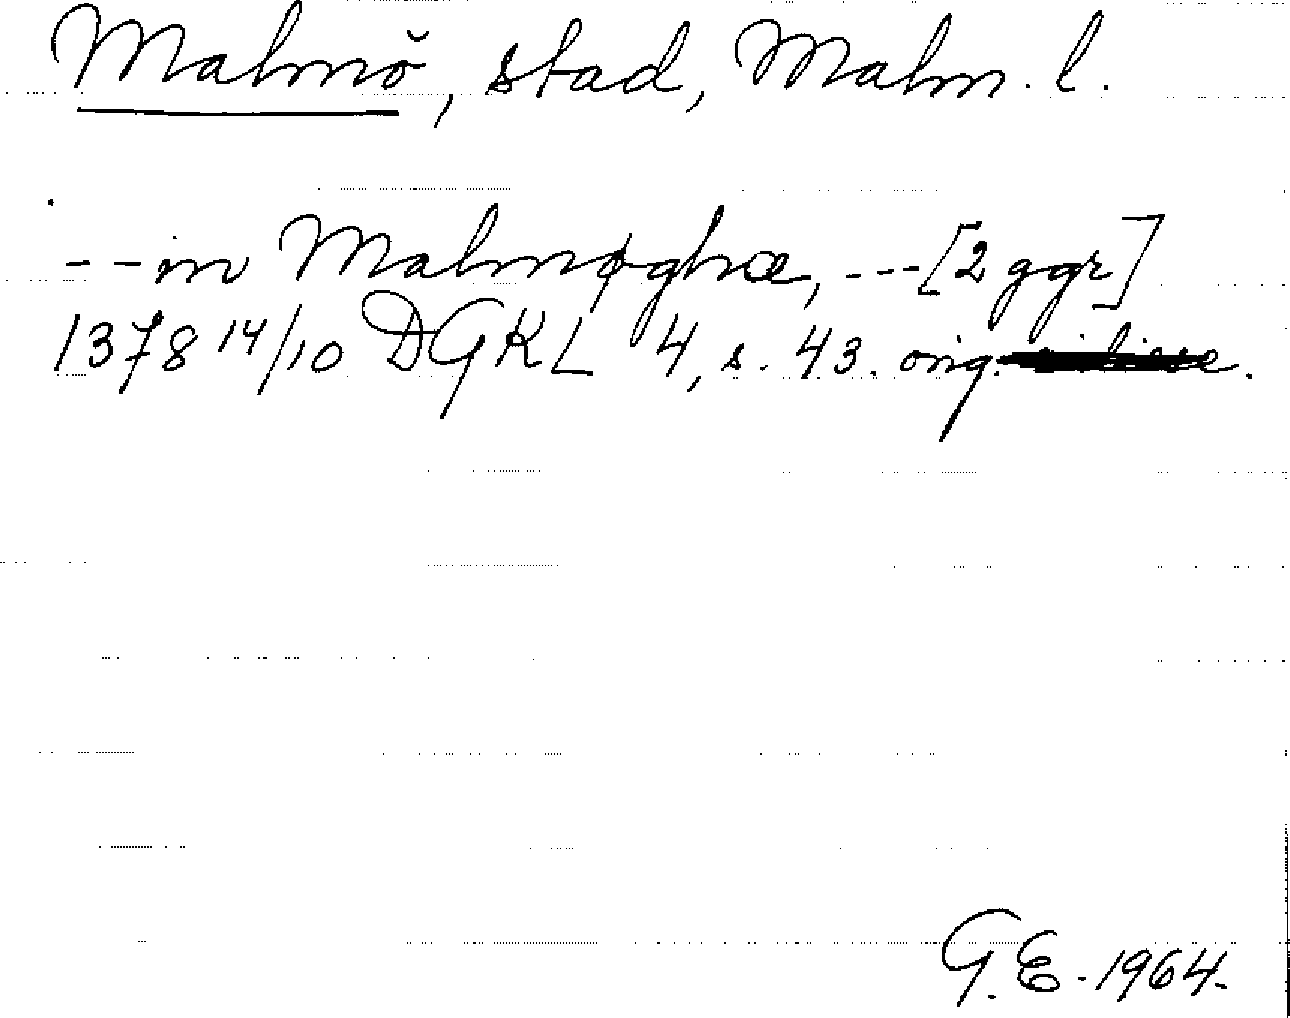 Malmö, stad, Malm. l.
- - in Malmøghæ, --- [2 ggr]
1378 14/10 DGKL 4, s. 43. orig.
G.E. 1964.